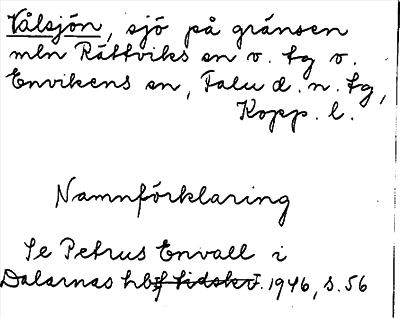 Vålsjön, sjö på gränsen
mln Rättviks sn v. tg o.
Envikens sn, Falu d. n. tg,
Kopp. l.
Namnförklaring
Se Petrus Envall i
Dalarnas hbf tidskr. 1946, s. 56